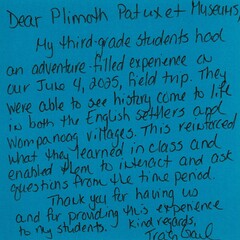 Dear Plimoth Patuxet Museums,
My third-grade students had
an adventure-filled experience on
our June 4, 2025, field trip. They
were able to see history come to life
in both the English settlers and
Wampanoag villages. This reinforced
what they learned in class and
enabled them to interact and ask
questions from the time period.
Thank you for having us
and for providing this experience
to my students. Kind regards,